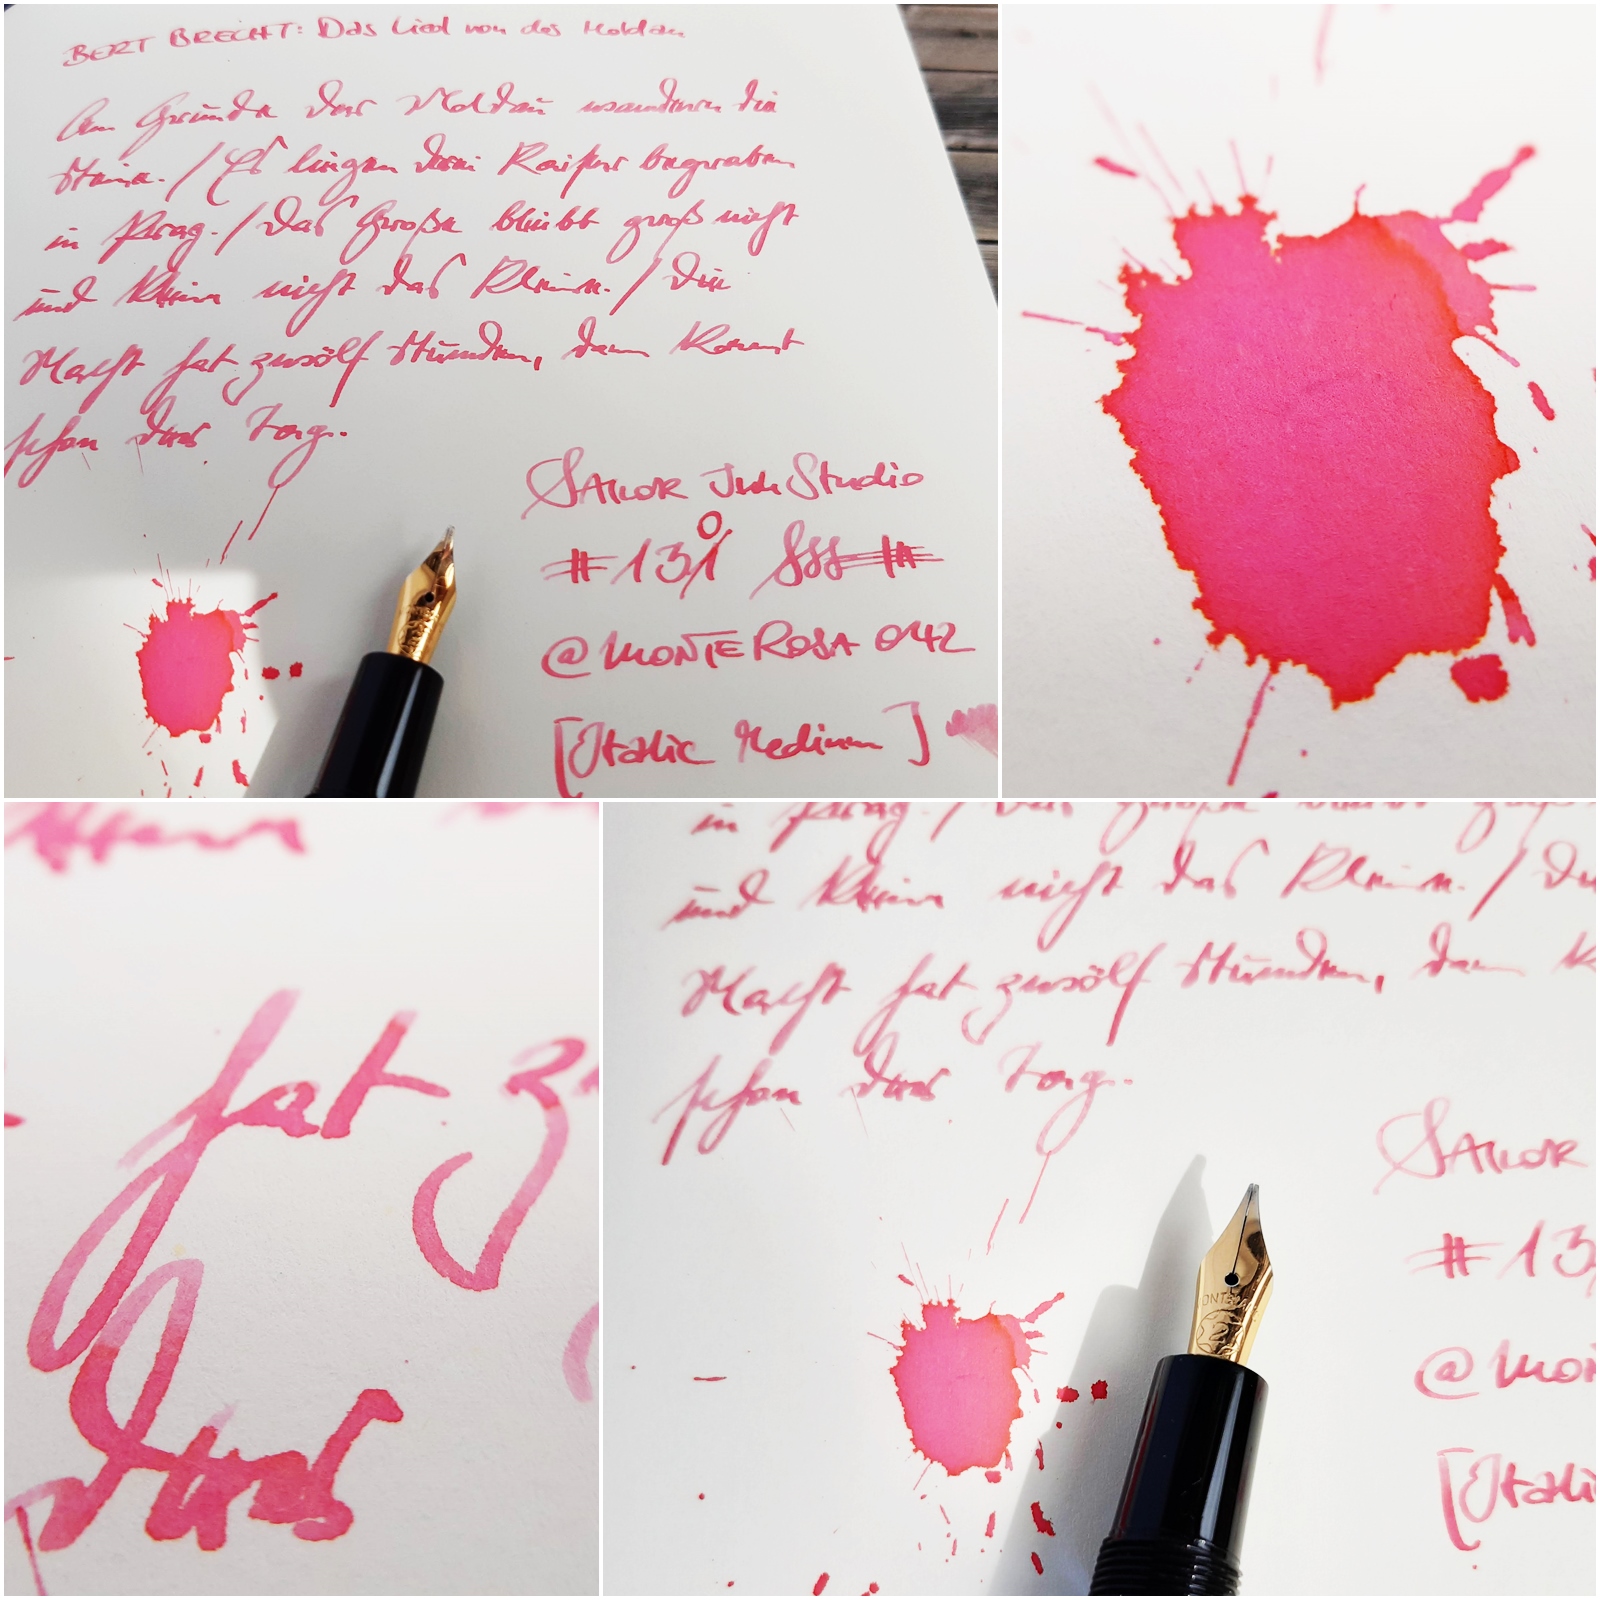 BERT BRECHT: Das Lied von der Moldau
Am Grunde der Moldau wandern die
Steine. / Es liegen drei Kaiser begraben
in Prag. / Das Große bleibt groß nicht
und klein nicht das Kleine. / Die
Nacht hat zwölf Stunden, dann kommt
schon der Tag.
SAILOR Ink Studio
#130
@MONTEROSA 042
[Italic Medium]
hat
der
in Prag. / Das Große bleibt
und klein nicht das Kleine. /
Nacht hat zwölf Stunden, dann
schon der Tag.
SAILOR
#13
@Mo
[Itali